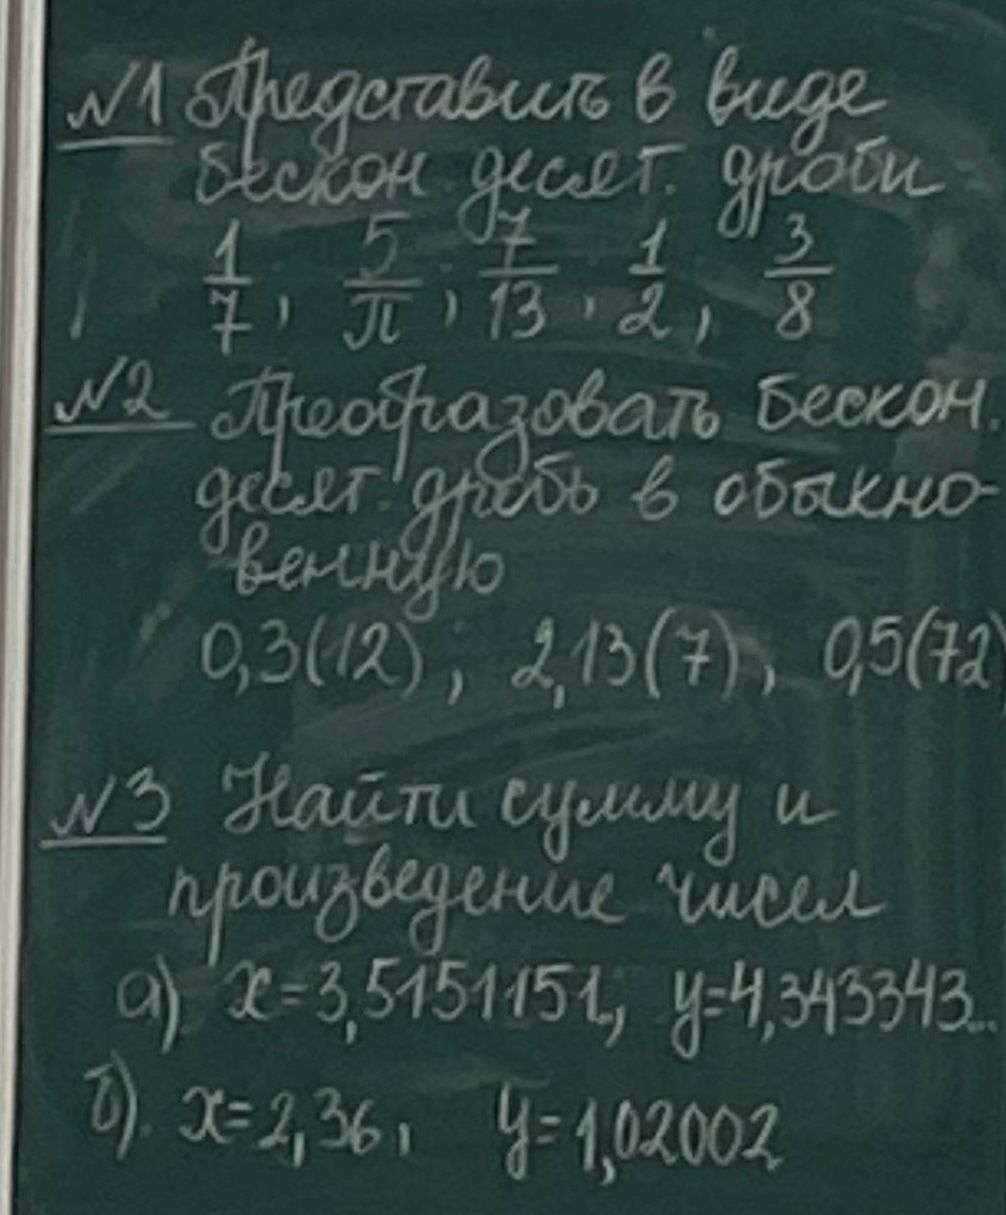 №1 Представить в виде
бескон десят. дроби
1/7, 5/π, 7/13, 1/2, 3/8
№2 Преобразовать бескон.
десят. дробь в обыкно-
венную
0,3(12), 2,13(7), 0,5(72)
№3 Найти сумму и
произведение чисел
а) x=3,5151151.., y=4,343343...
б). x=2,36, y=1,02002